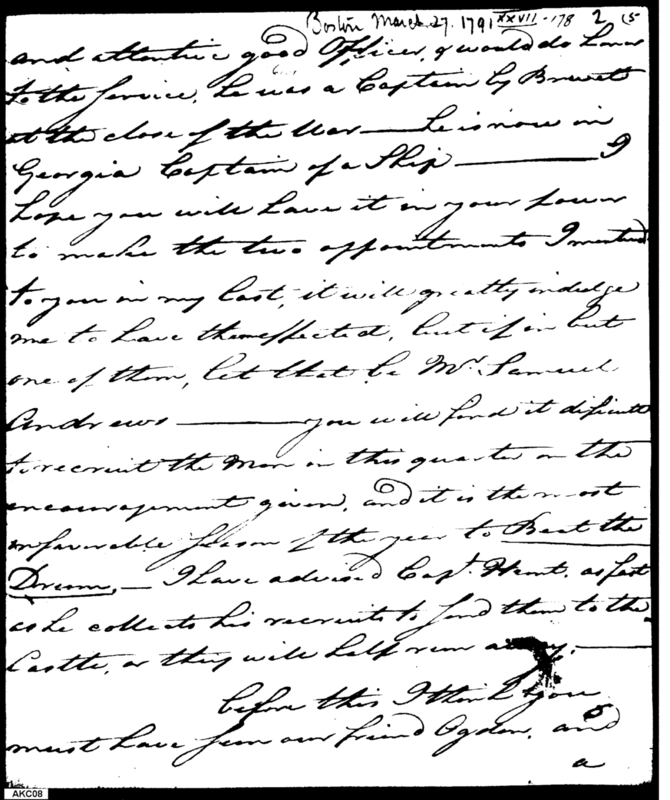 Boston March 27. 1791 XXVII-178 2 (5
and attentive good Officer, & would do honor
to the Service, he was a Captain by Brevett
at the close of the War — he is now in
Georgia Captain of a Ship — I
hope you will have it in your power
to make the two appointments I mentd
to you in my last, it will greatly indulge
me to have them effected, but if in but
one of them, let that be Mr. Samuel
Andrews — you will find it dificult
to recruit the Men in this quarter on the
encouragement given, and it is the most
unfavorable season of the year to Beat the
Drum, — I have advised Capt. Hunt, as fast
as he collects his recruits to send them to the
Castle, or they will half run away. —
before this I think you
must have seen our friend Ogden, and
a
AKC08